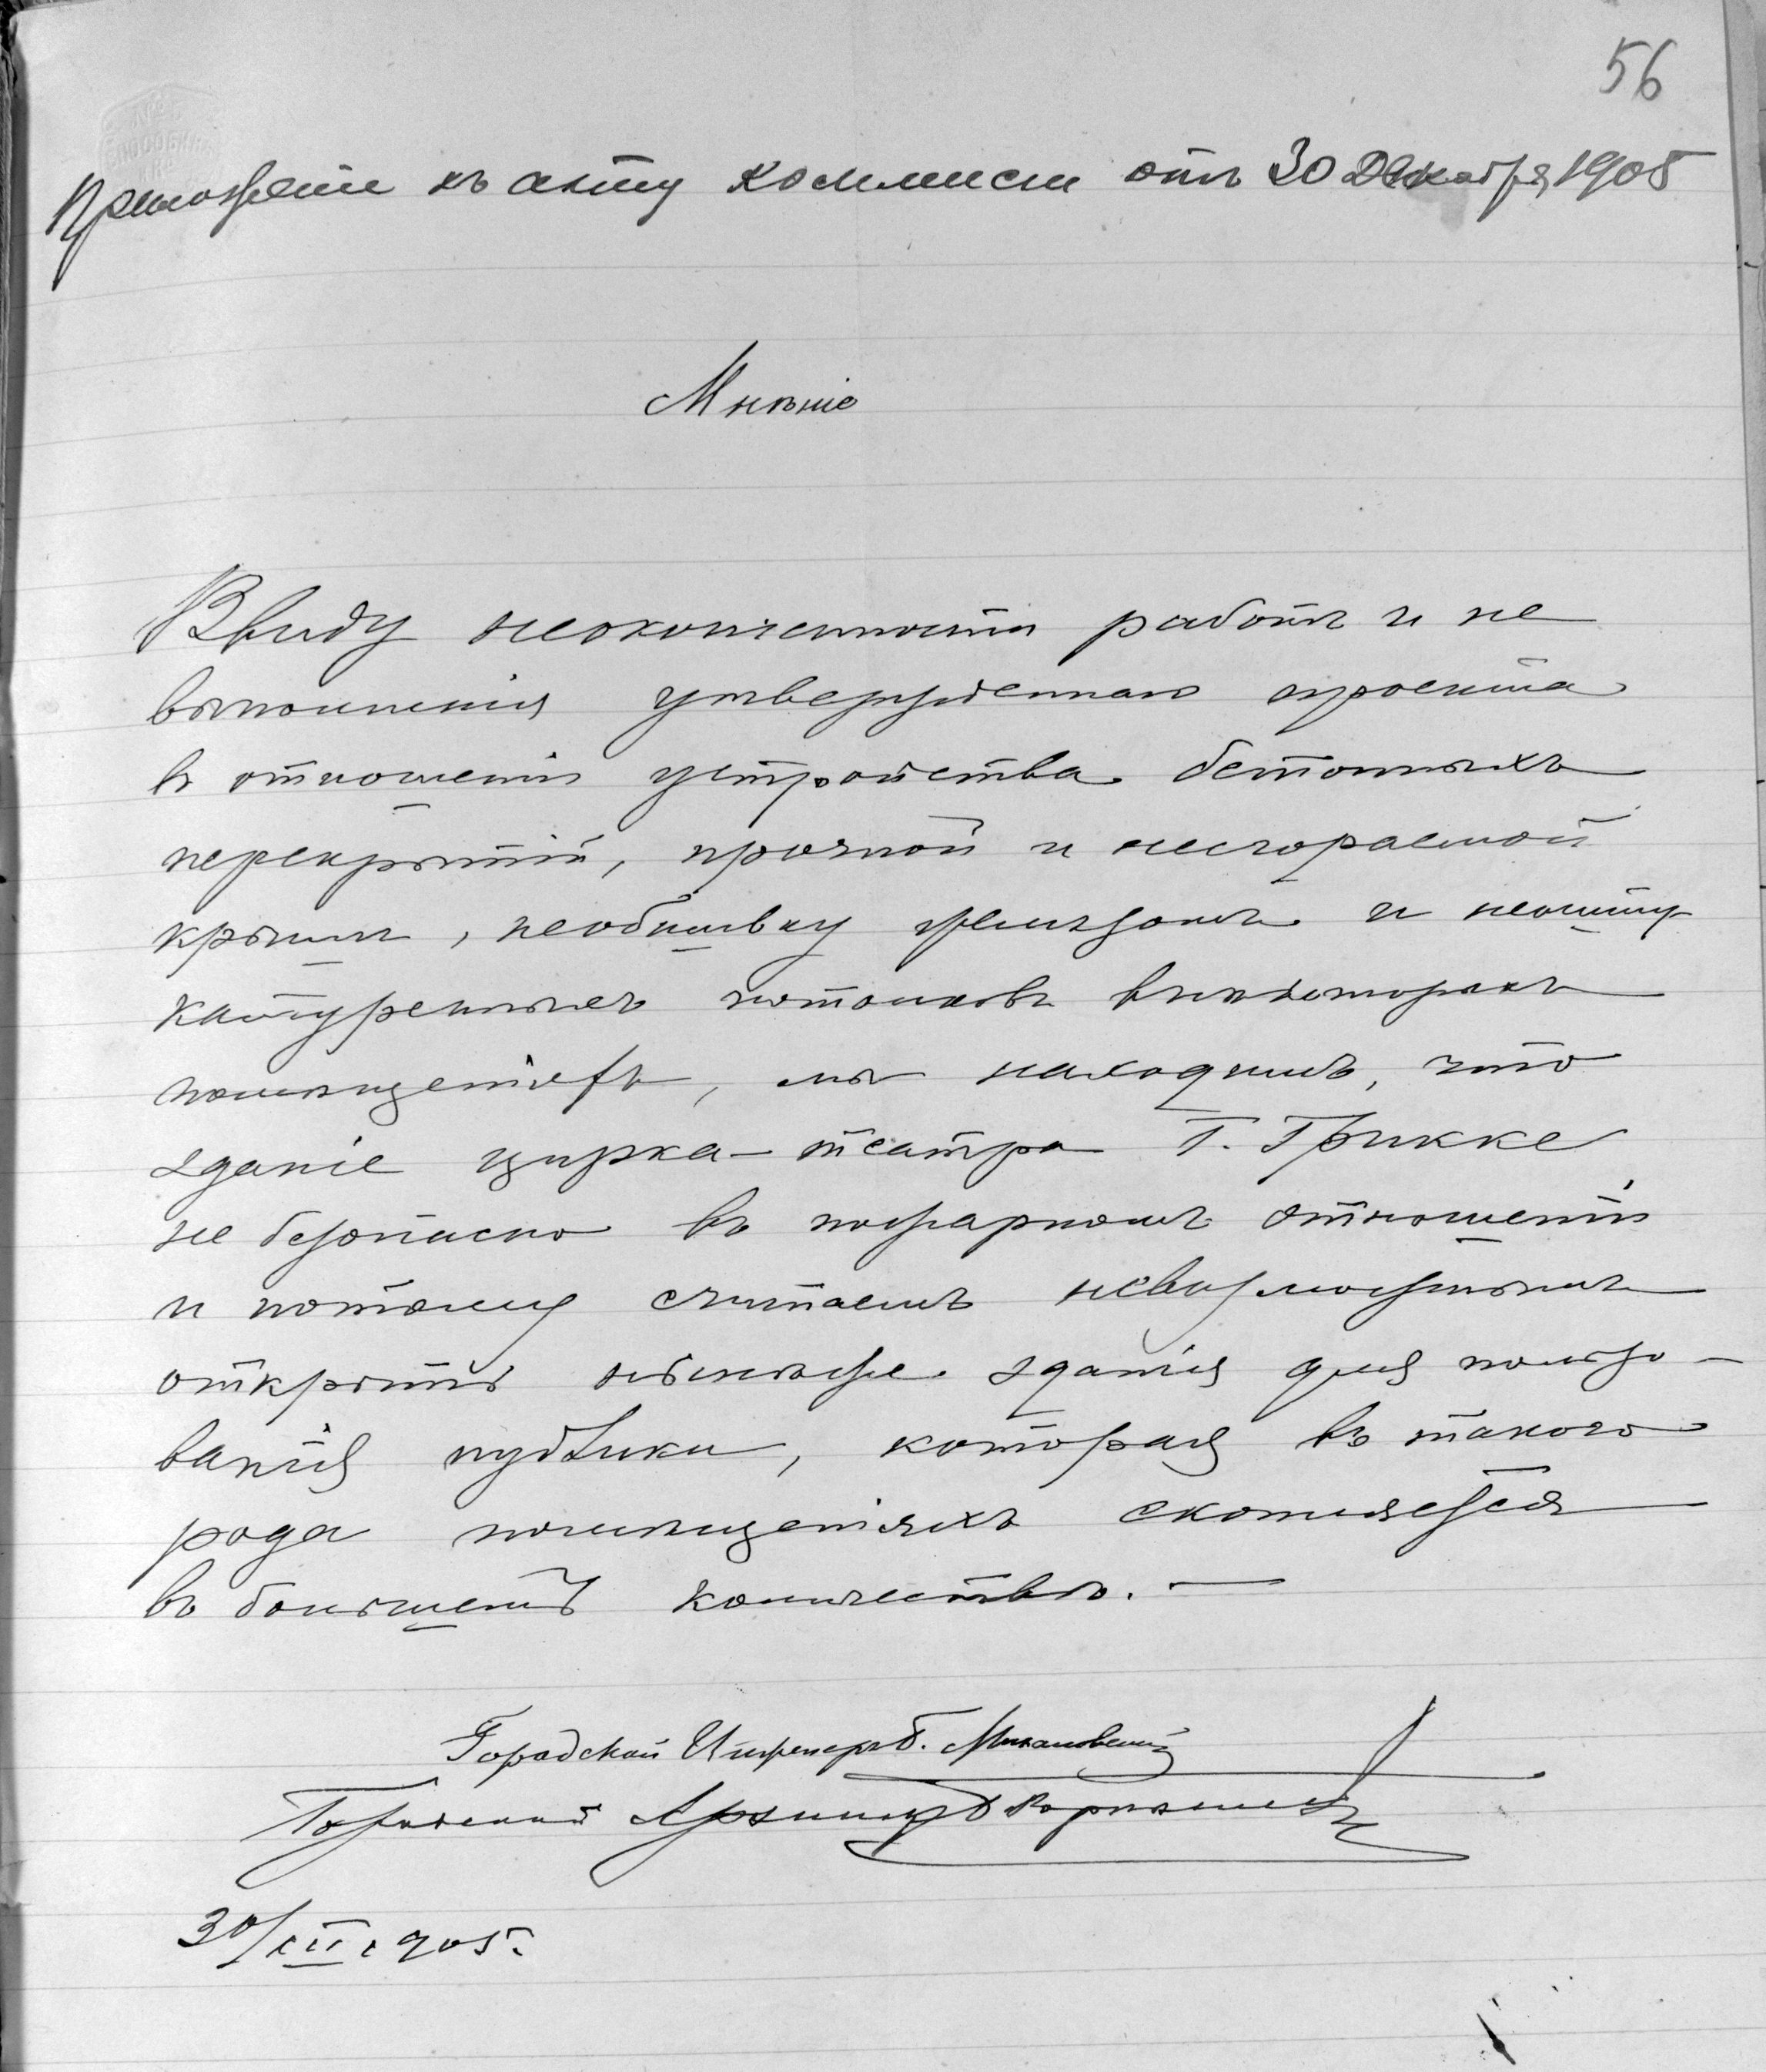 56
Приложеніе къ акту коммисіи отъ 30 Декабря 1905
Мнѣніе
Ввиду неоконченности работъ и не
выполненія утвержденнаго проекта
въ отношеніи устройства бетонныхъ
перекрытій, прочной и несгораемой
крыши, необшивку желѣзомъ и неошту-
катуренныхъ потолковъ в нѣкоторыхъ
помѣщеніяхъ, мы находимъ, что
зданіе цирка-театра Г. Грикке
не безопасно въ пожарномъ отношеніи
и потому считаемъ невозможнымъ
открытіе нынѣже зданія для пользо-
ванія публики, которая въ такого
рода помѣщеніяхъ скопляется
въ большемъ количествѣ. —
Городской Инженеръ Б.
Городской Архитекторъ
30/XII 1905.